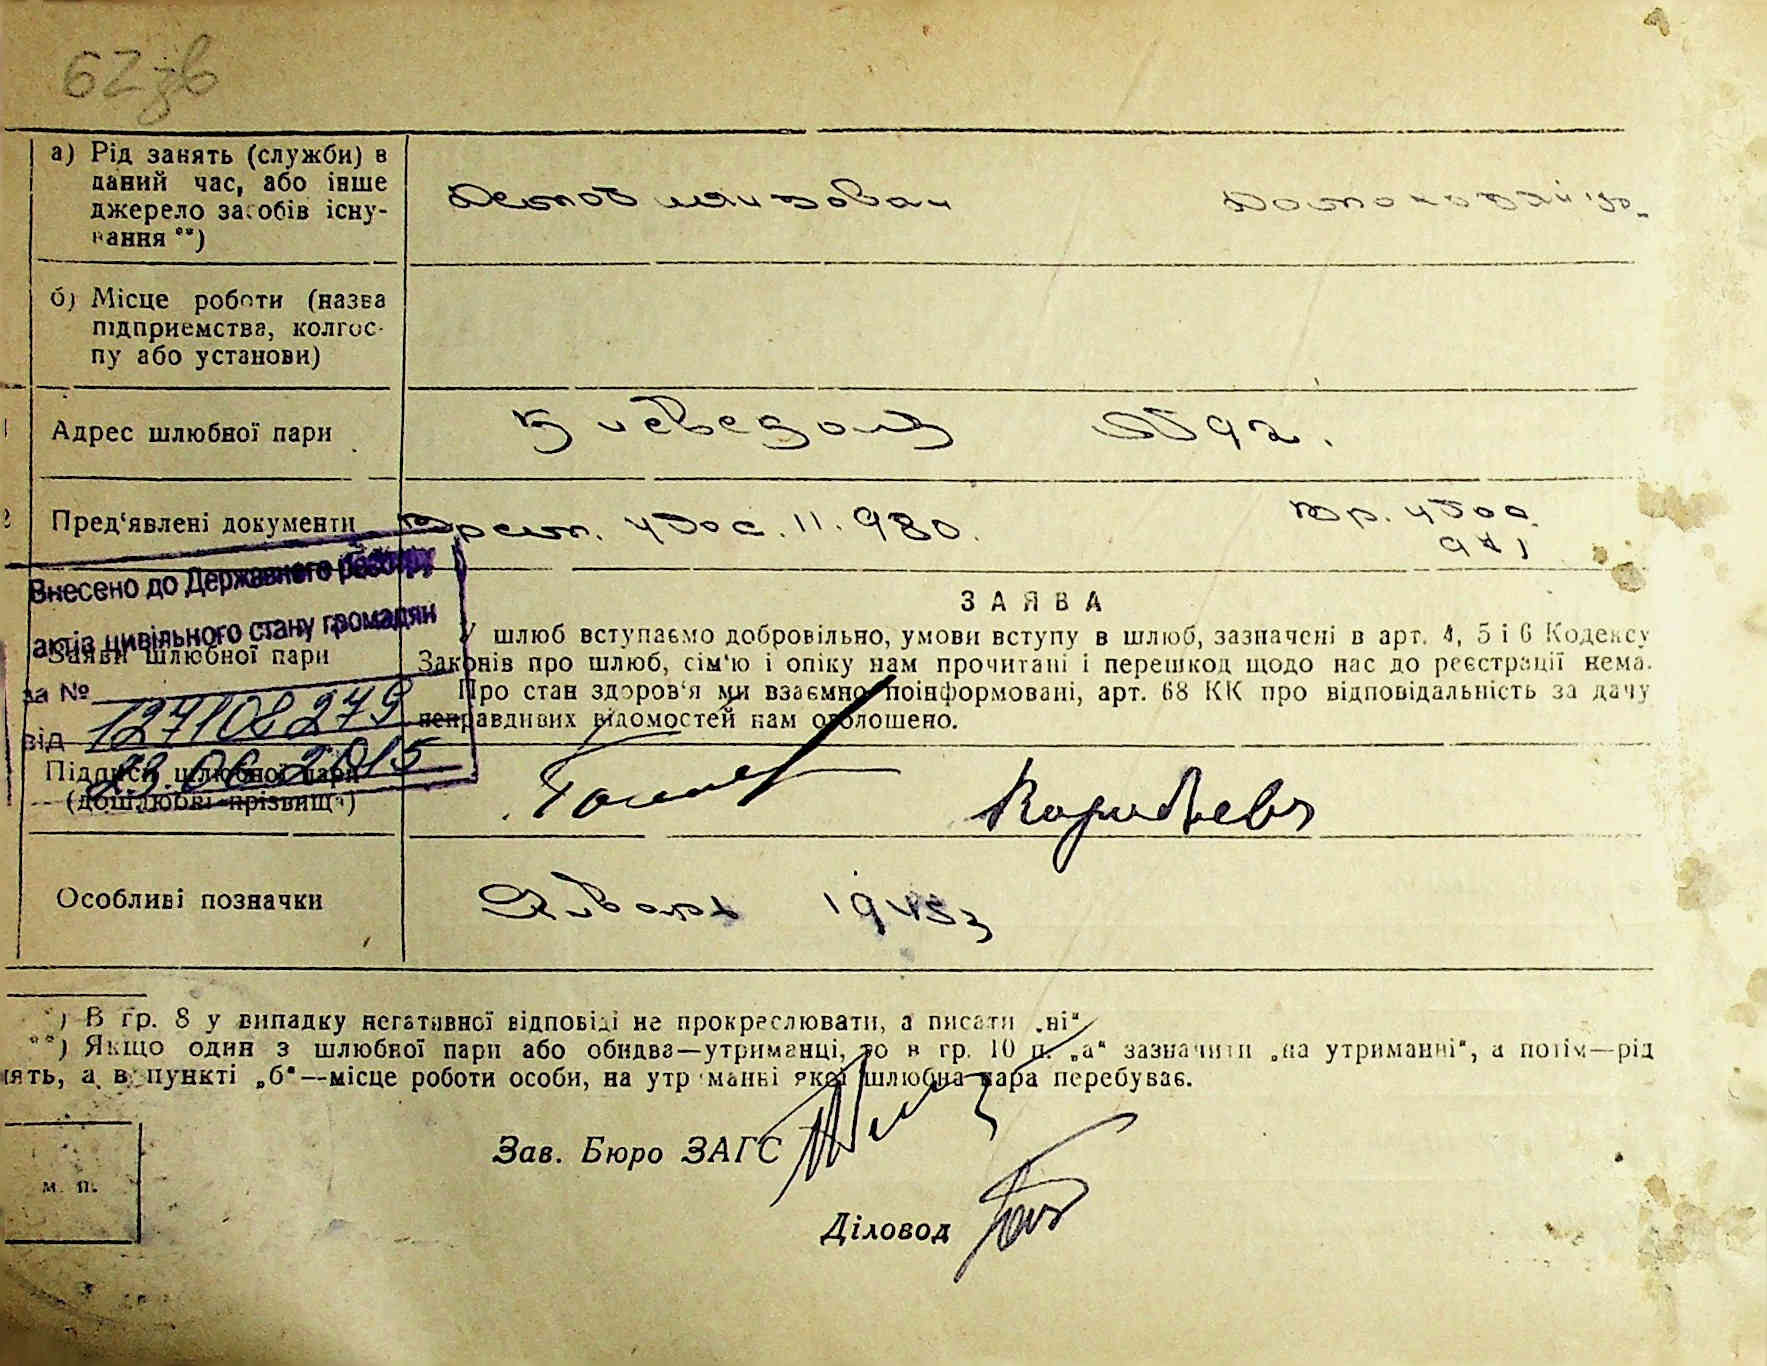 62зв
а) Рід занять (служби) в
даний час, або інше
джерело засобів існу-
вання **)
Демобилизован
б) Місце роботи (назва
підприемства, колгос-
пу або установи)
Адрес шлюбної пари
Пред'явлені документи
удос. 11. 980.
удос
941
Внесено до Державного реєстру
актів цивільного стану громадян
за № 127108279
від 23.06.2015
Заяви шлюбної пари
ЗАЯВА
У шлюб вступаємо добровільно, умови вступу в шлюб, зазначені в арт. 4, 5 і 6 Кодексу
Законів про шлюб, сім'ю і опіку нам прочитані і перешкод щодо нас до реєстрації нема.
Про стан здоров'я ми взаємно поінформовані, арт. 68 КК про відповідальність за дачу
неправдивих відомостей нам оголошено.
Підписи шлюбної пари
(дошлюбні прізвища)
Особливі позначки
Январь 1945г
*) В гр. 8 у випадку негативної відповіді не прокреслювати, а писати „ні“
**) Якщо один з шлюбної пари або обидва—утриманці, то в гр. 10 п. „а“ зазначити „на утриманні“, а потім—рід
нять, а в пункті „б“—місце роботи особи, на утриманні якої шлюбна пара перебуває.
Зав. Бюро ЗАГС
м. п.
Діловод